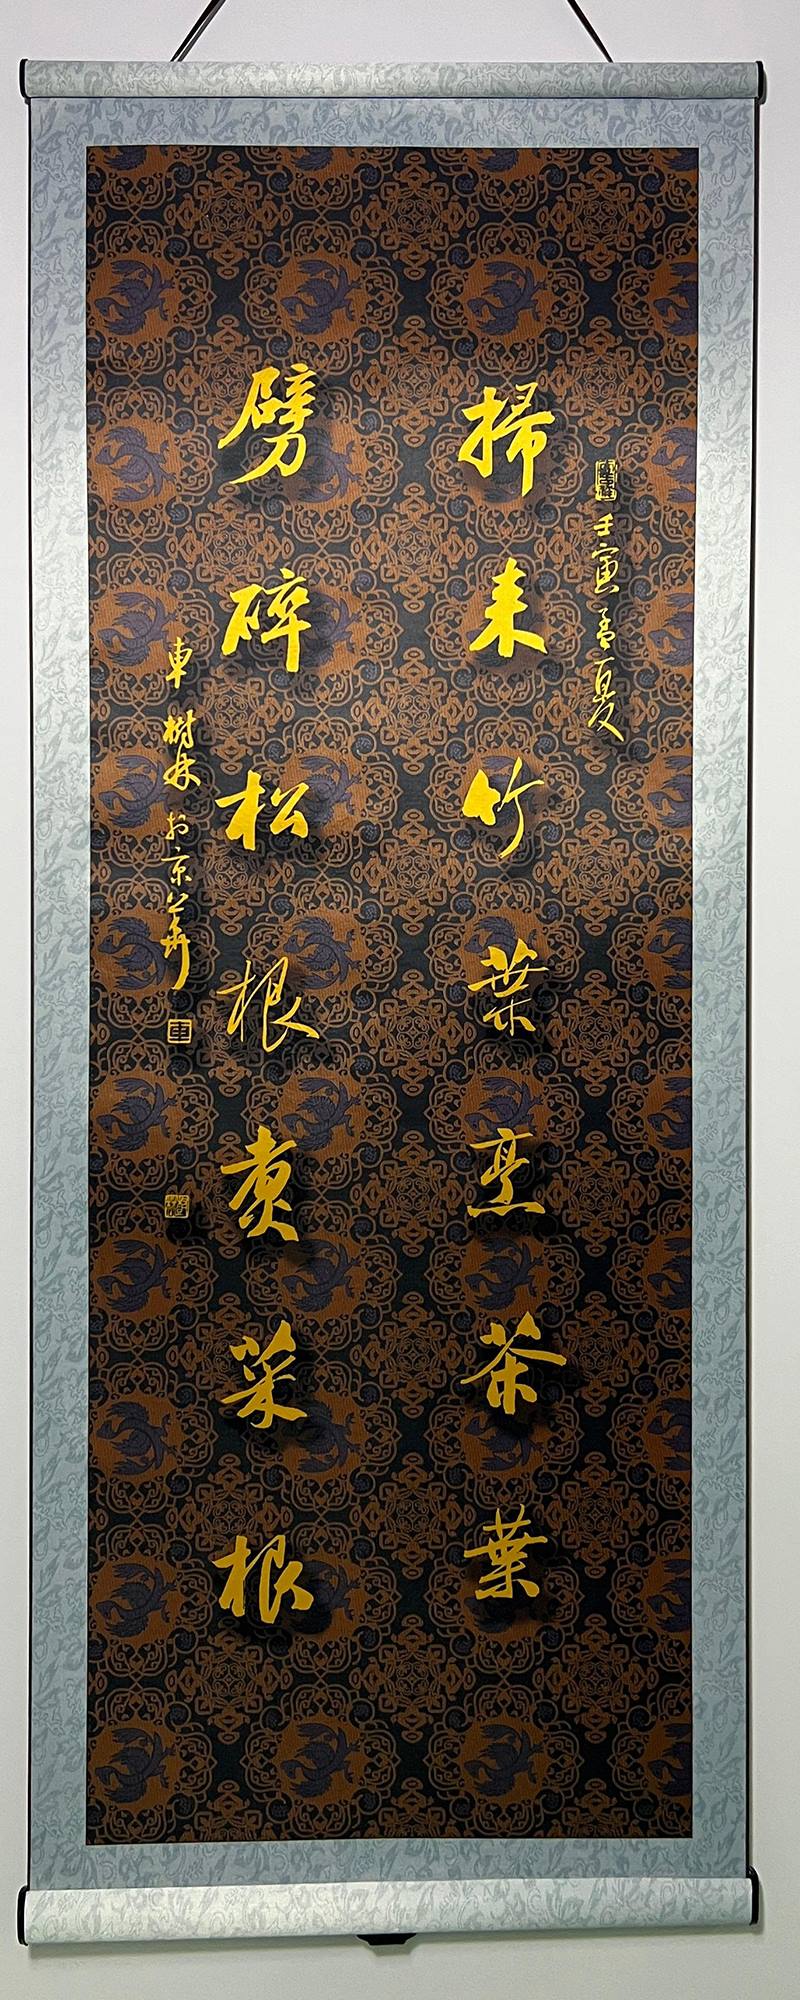 壬寅孟夏
掃来竹葉烹茶葉
劈碎松根煮菜根
車樹林於京華
車